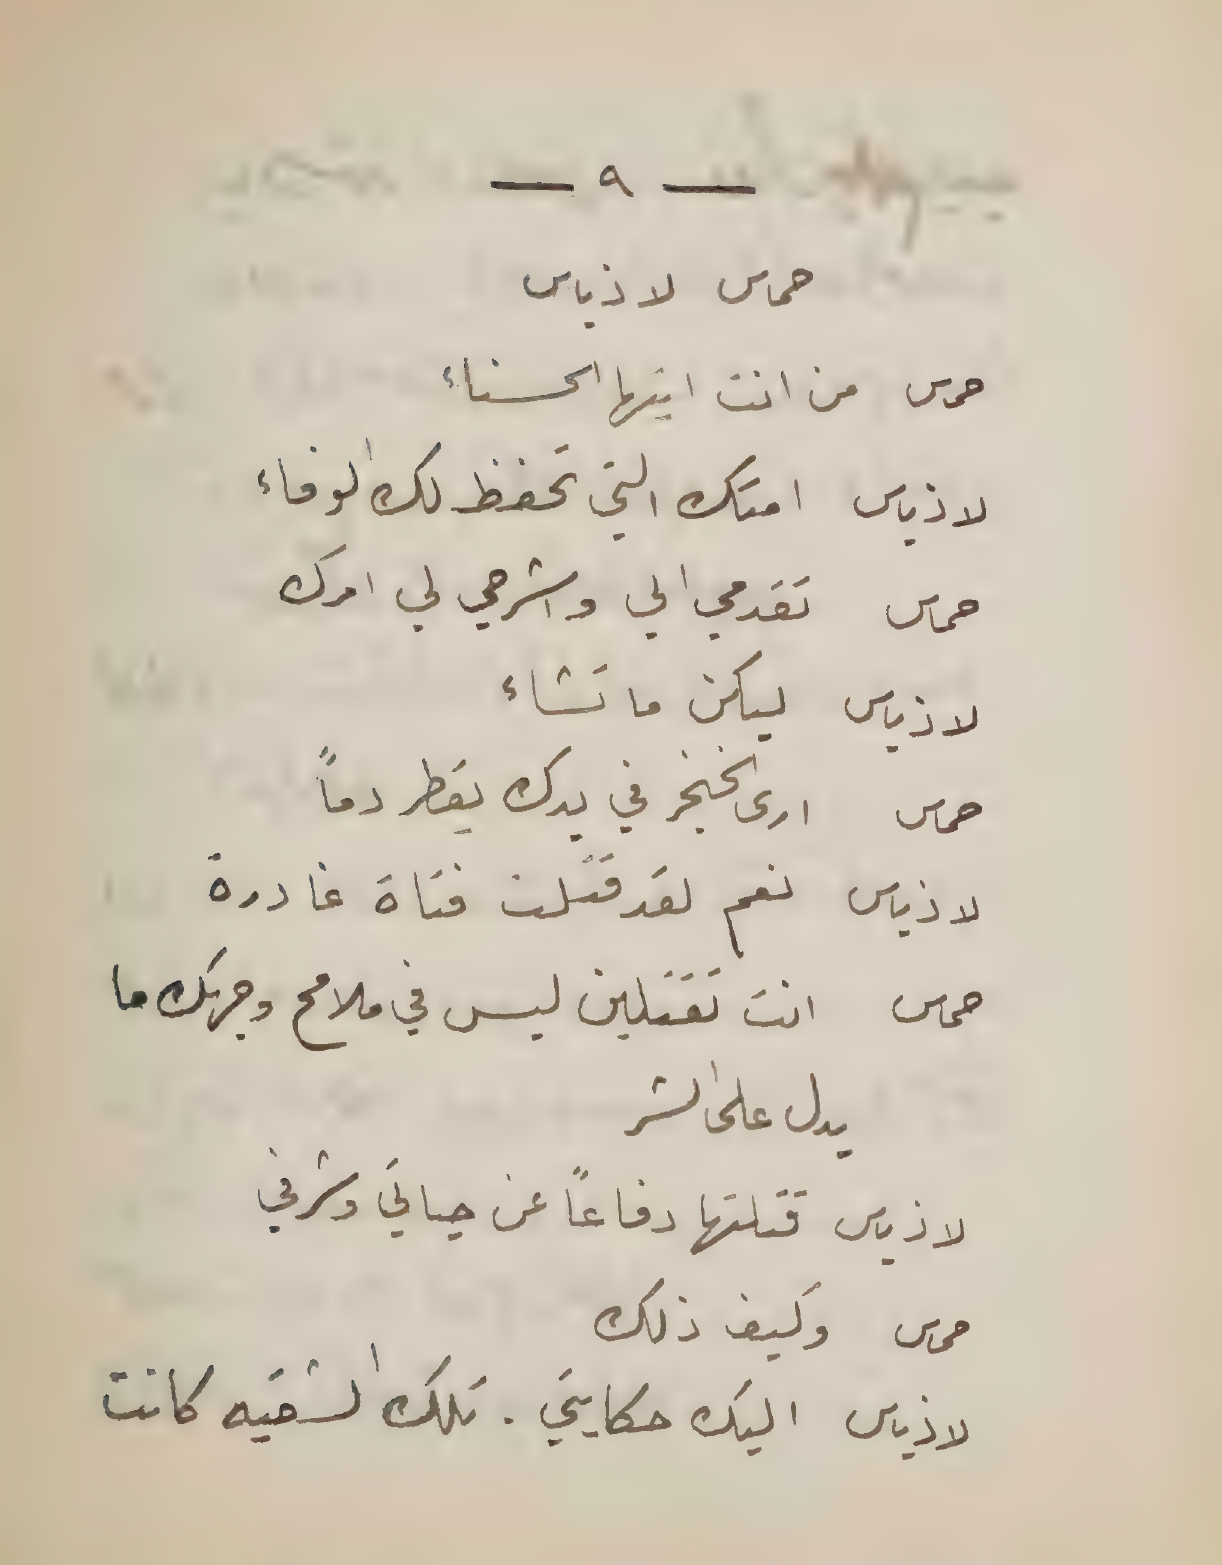 — ٩ —
حماس لاذياس
حماس من انت ايتها الحسناء
لاذياس امتك التي تحفظ لك الوفاء
حماس تقدمي الي واشرحي لي امرك
لاذياس ليكن ما تشاء
حماس ارى الخنجر في يدك يقطر دماً
لاذياس نعم لقد قتلت فتاة غادرة
حماس انت تقتلين ليس في ملامح وجهك ما
يدل على الشر
لاذياس قتلتها دفاعاً عن حياتي وشرفي
حماس وكيف ذلك
لاذياس اليك حكايتي . تلك الشقيه كانت